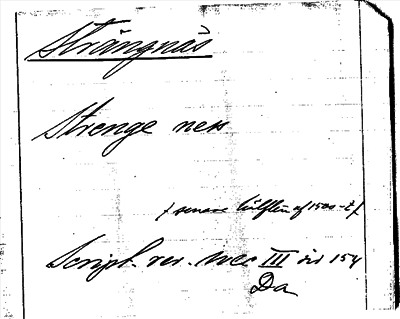 Strängnäs
Strenge nes
( senare hälften af 1500-t. )
Script. rer. svec III sid 154
Da